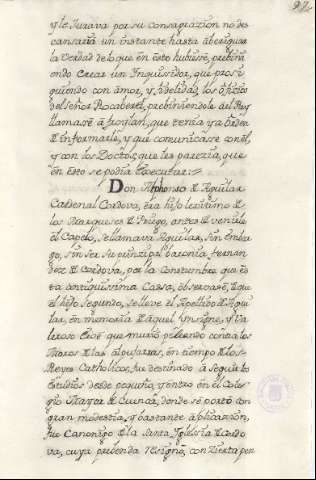 y le Jurava por su consagrazion no des
cansaria un instante hasta aberiguar
la Verdad de lo que en esto hubiese, previni
endo Crear un Inquissidor, que prosi
guiendo con amor, y fidelidad, los oficios
del Señor Rocaberti, previniendole al Rey
llamase a Froylan, que tenia ya orden
de informarle, y que comunicase con el,
y con los Doctos, que les parezia, que
en esto se podia Executar:
Don Alphonso de Aguilar
Cardenal Cordova, era hijo lexitimo de
los Marqueses de Priego, antes de venirle
el Capelo, se llamava Aguilar, sin emba
go, sin ser su principal baronia, fernan
dez de Cordova, por la Constumbre que es
ta antiquissima Cassa, observare, de que
el hijo Segundo, se lleve el Apellido de Agui
lar, en memoria de aquel Ynsigne, y Va
leroso Eroe que murió peleando contra los
Moros de las Alpujarras, en tiempo de los
Reyes Catholicos, fue destinado a seguir los
Estudios desde pequeño, y entro en el Cole
gio Mayor de Cuenca, donde se portó con
gran modestia, y bastante aplicazion,
fue Canonigo de la Santa Yglesia de Cordo
va, cuya prebenda resignó, con zierta pen